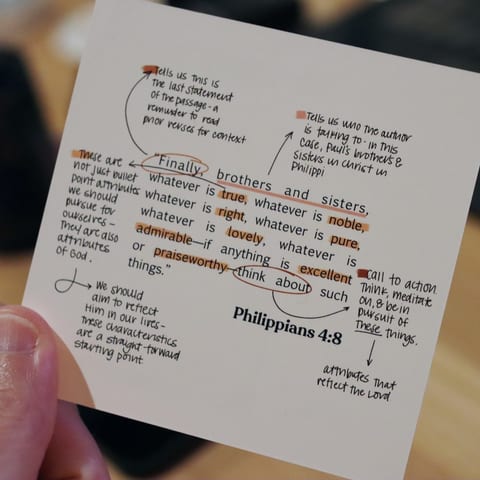 Tells us this is
the last statement
of the passage - a
reminder to read
prior verses for context
Tells us who the author
is talking to - in this
case, Paul's brothers &
sisters in Christ in
Philippi
These are
not just bullet
point attributes
we should
pursue for
ourselves -
they are also
attributes
of God.
We should
aim to reflect
Him in our lives -
these characteristics
are a straight-forward
starting point.
"Finally, brothers and sisters,
whatever is true, whatever is noble,
whatever is right, whatever is pure,
whatever is lovely, whatever is
admirable—if anything is excellent
or praiseworthy—think about such
things."
Philippians 4:8
Call to action
Think, meditate
on, & be in
pursuit of
these things.
attributes that
reflect the Lord